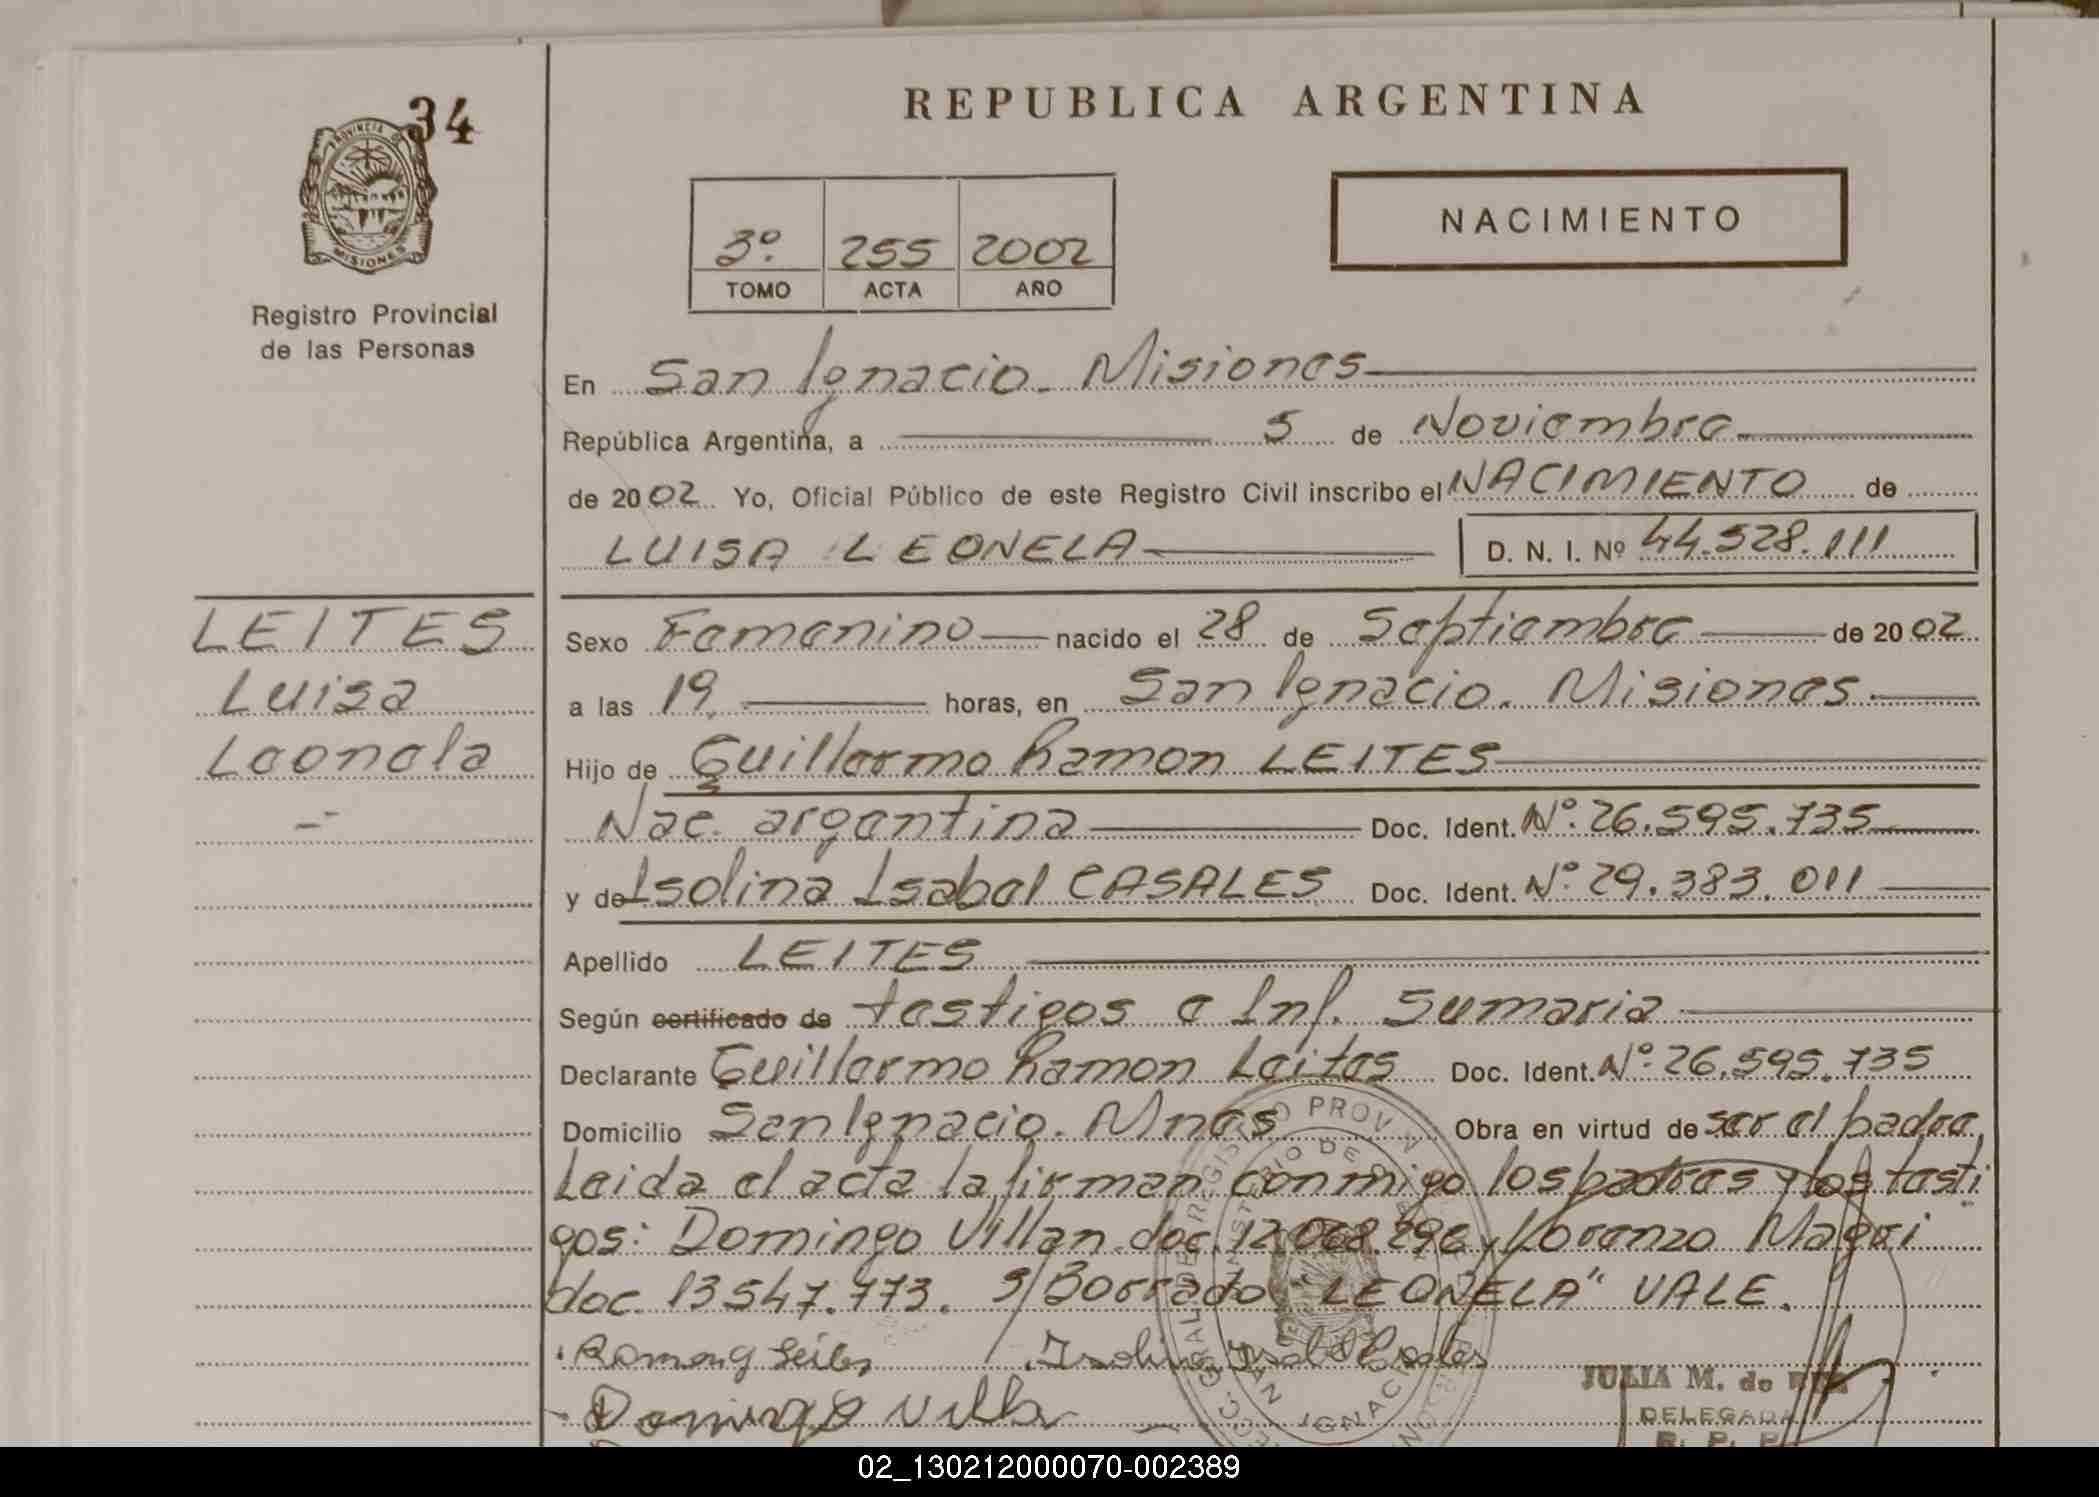 34
PROVINCIA DE
MISIONES
Registro Provincial
de las Personas
REPUBLICA ARGENTINA
3º. 255 2002
TOMO ACTA AÑO
NACIMIENTO
En San Ignacio. Misiones
República Argentina, a 5 de Noviembre
de 2002 Yo, Oficial Público de este Registro Civil inscribo el NACIMIENTO de
LUISA LEONELA D. N. I. Nº 44.528.111
LEITES
Luisa
Leonela
Sexo Femenino nacido el 28 de Septiembre de 2002
a las 19, horas, en San Ignacio. Misiones
Hijo de Guillermo Ramon LEITES
Nac. argentina Doc. Ident. Nº. 26.595.735
y de Isolina Isabel CASALES Doc. Ident. Nº. 29.383.011
Apellido LEITES
Según certificado de testigos e Inf. Sumaria
Declarante Guillermo Ramon Leites Doc. Ident. Nº. 26.595.735
Domicilio San Ignacio. Mnes Obra en virtud de ser el padre,
Leida el acta la firman conmigo los padres y los testi
gos: Domingo Villan doc. 12.068.296 y Lorenzo Magri
doc. 13547.773. S/Borrado "LEONELA" VALE.
Domingo
JULIA M. de
DELEGADA
R. P. P.
02_130212000070-002389